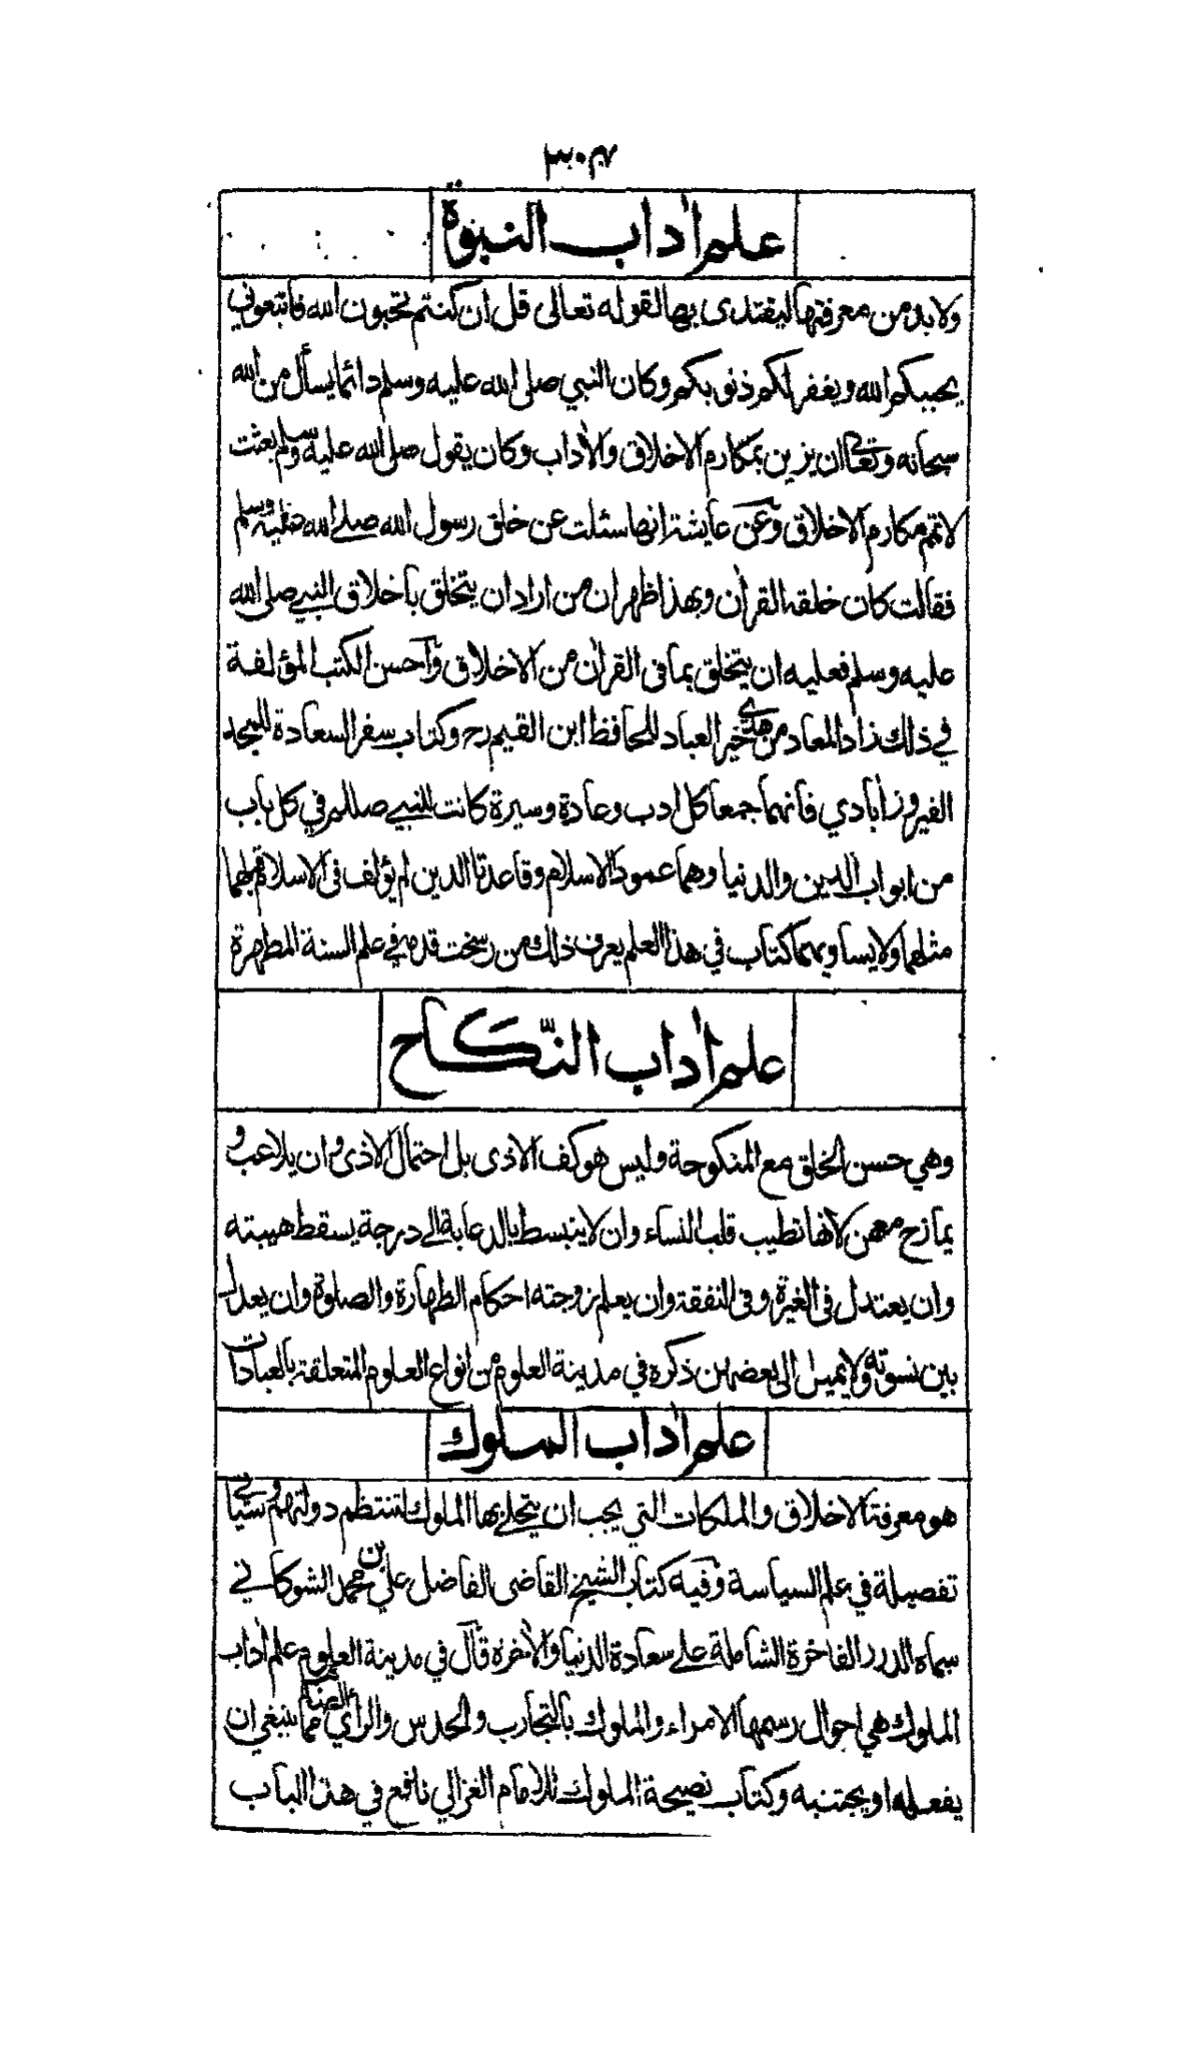 علم اٰداب النبوة
ولا بد من معرفتها ليقتدى بها لقوله تعالى قل ان كنتم تحبون الله فاتبعوني
يحببكم الله ويغفر لكم ذنوبكم وكان النبي صلى الله عليه وسلم دائما يسأل من الله
سبحانه وتعالى ان يزين بمكارم الاخلاق والاٰداب وكان يقول صلى الله عليه وسلم بعثت
لاتمم مكارم الاخلاق وعن عايشة انها سئلت عن خلق رسول الله صلى الله عليه وسلم
فقالت كان خلقه القراٰن وبهذا ظهر ان من اراد ان يتخلق بأخلاق النبي صلى الله
عليه وسلم فعليه ان يتخلق بما فى القراٰن من الاخلاق وآحسن الكتب المؤلفة
في ذلك زاد المعاد من هدي خير العباد للحافظ ابن القيم رح وكتاب سفر السعادة للمجد
الفيروزاٰبادي فانهما جمعا كل ادب وعادة وسيرة كانت للنبي صللم في كل باب
من ابواب الدين والدنيا وهما عمودا الاسلام وقاعدتا الدين لم يؤلف فى الاسلام قبلهما
مثلهما ولا يساويهما كتاب في هذا العلم يعرف ذلك من رسخت قدمه في علم السنة المطهرة
علم اٰداب النّكاح
وهي حسن الخلق مع المنكوحة وليس هو كف الاذى بل احتمال الاذى وان يلاعب و
يمازح معهن لانها تطيب قلب النساء وان لا يتبسط بالدعابة الى درجة يسقط هيبته
وان يعتدل فى الغيرة وفى النفقة وان يعلم زوجته احكام الطهارة والصلوة وان يعدل
بين نسوته ولا يميل الى بعضهن ذكره في مدينة العلوم من انواع العلوم المتعلقة بالعبادات
علم اٰداب الملوك
هو معرفة الاخلاق والملكات التي يجب ان يتحلى بها الملوك لتنتظم دولتهم وسيأتي
تفصيله في علم السياسة وفيه كتاب الشيخ القاضى الفاضل علي بن محمد الشوكاني
سماه الدرر الفاخرة الشاملة على سعادة الدنيا والاٰخرة قآل في مدينة العلوم علم اٰداب
الملوك هي احوال رسمها الامراء والملوك بالتجارب والحدس والرأي مما ينبغي ان
يفعله او يجتنبه وكتاب نصيحة الملوك للامام الغزالي نافع في هذا الباب